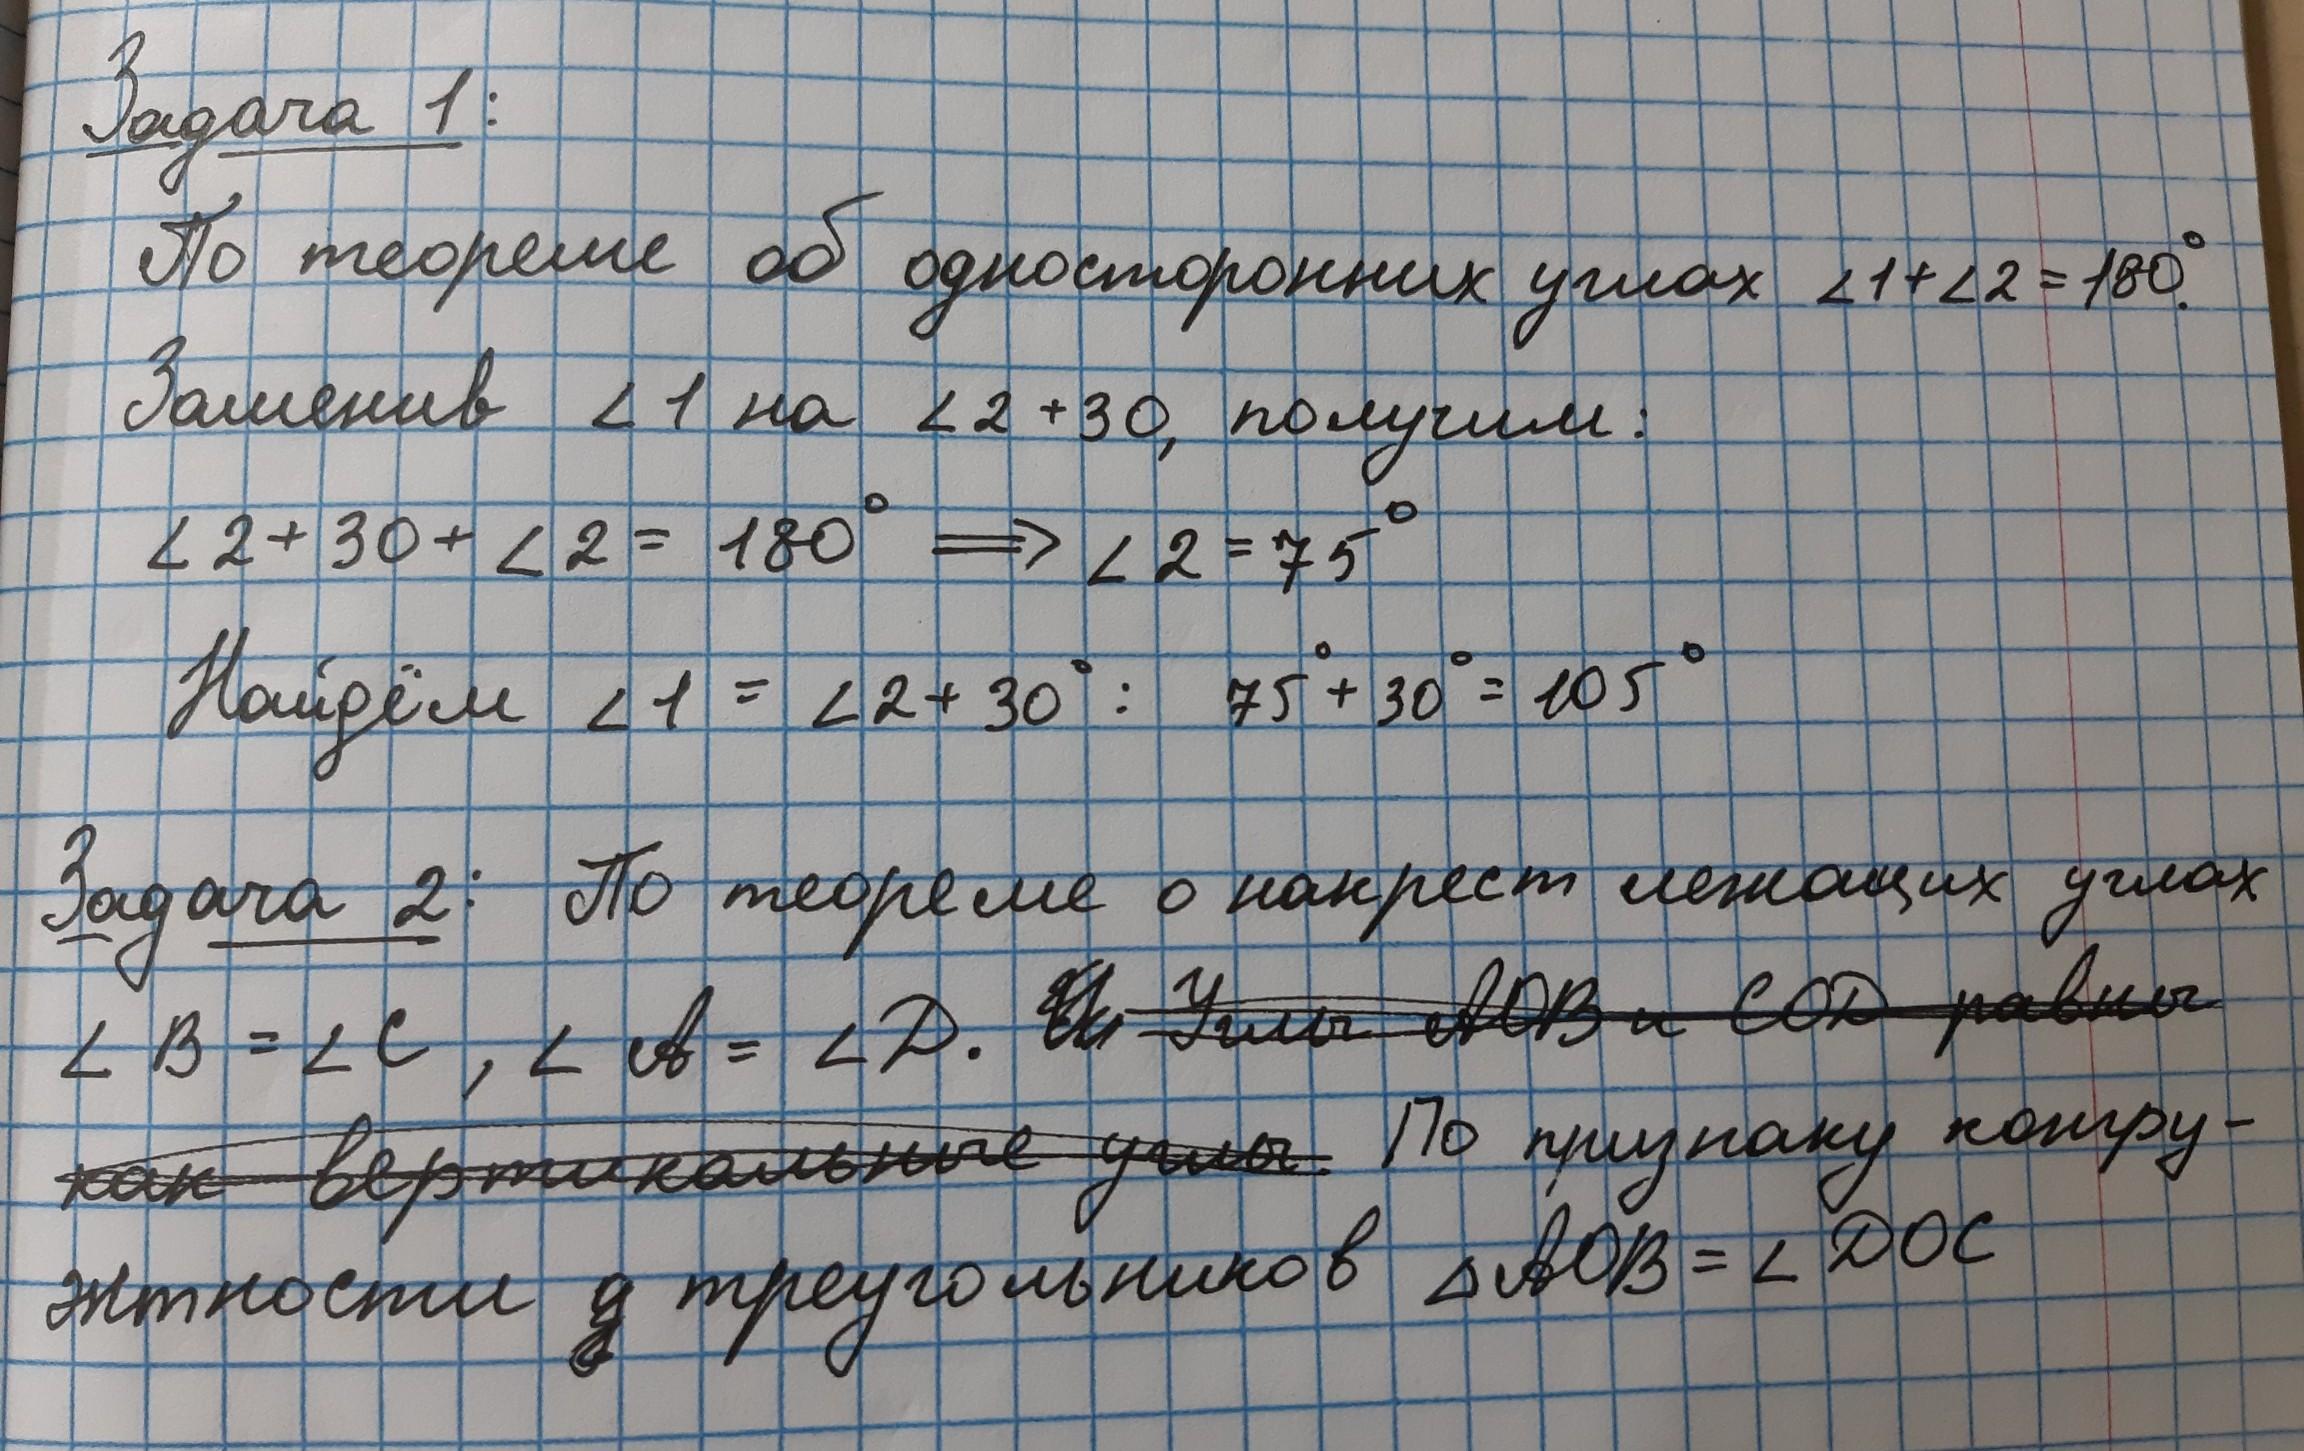 Задача 1:
По теореме об односторонних углах ∠1+∠2=180°.
Заменив ∠1 на ∠2+30, получим:
∠2+30+∠2=180° ⟹ ∠2=75°
Найдём ∠1=∠2+30°: 75°+30°=105°
Задача 2: По теореме о накрест лежащих углах
∠B=∠C, ∠A=∠D. Углы AOB и COD равны
как вертикальные углы. По признаку конгру-
энтности треугольников △AOB=∠DOC